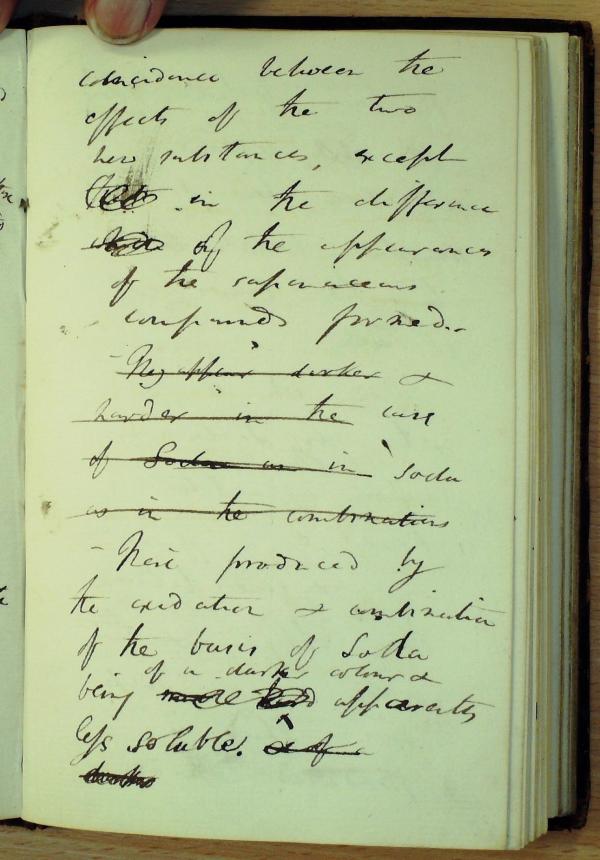 coincidence between the
effects of the two
new substances, except
in the difference
of the appearances
of the saponaceous
compounds formed.-
- They appear darker &
harder in the case
of Soda as in soda
as in the combinations
- those produced by
the oxidation & combination
of the basis of Soda
of a darker colour &
being more apparently
less soluble. & of a